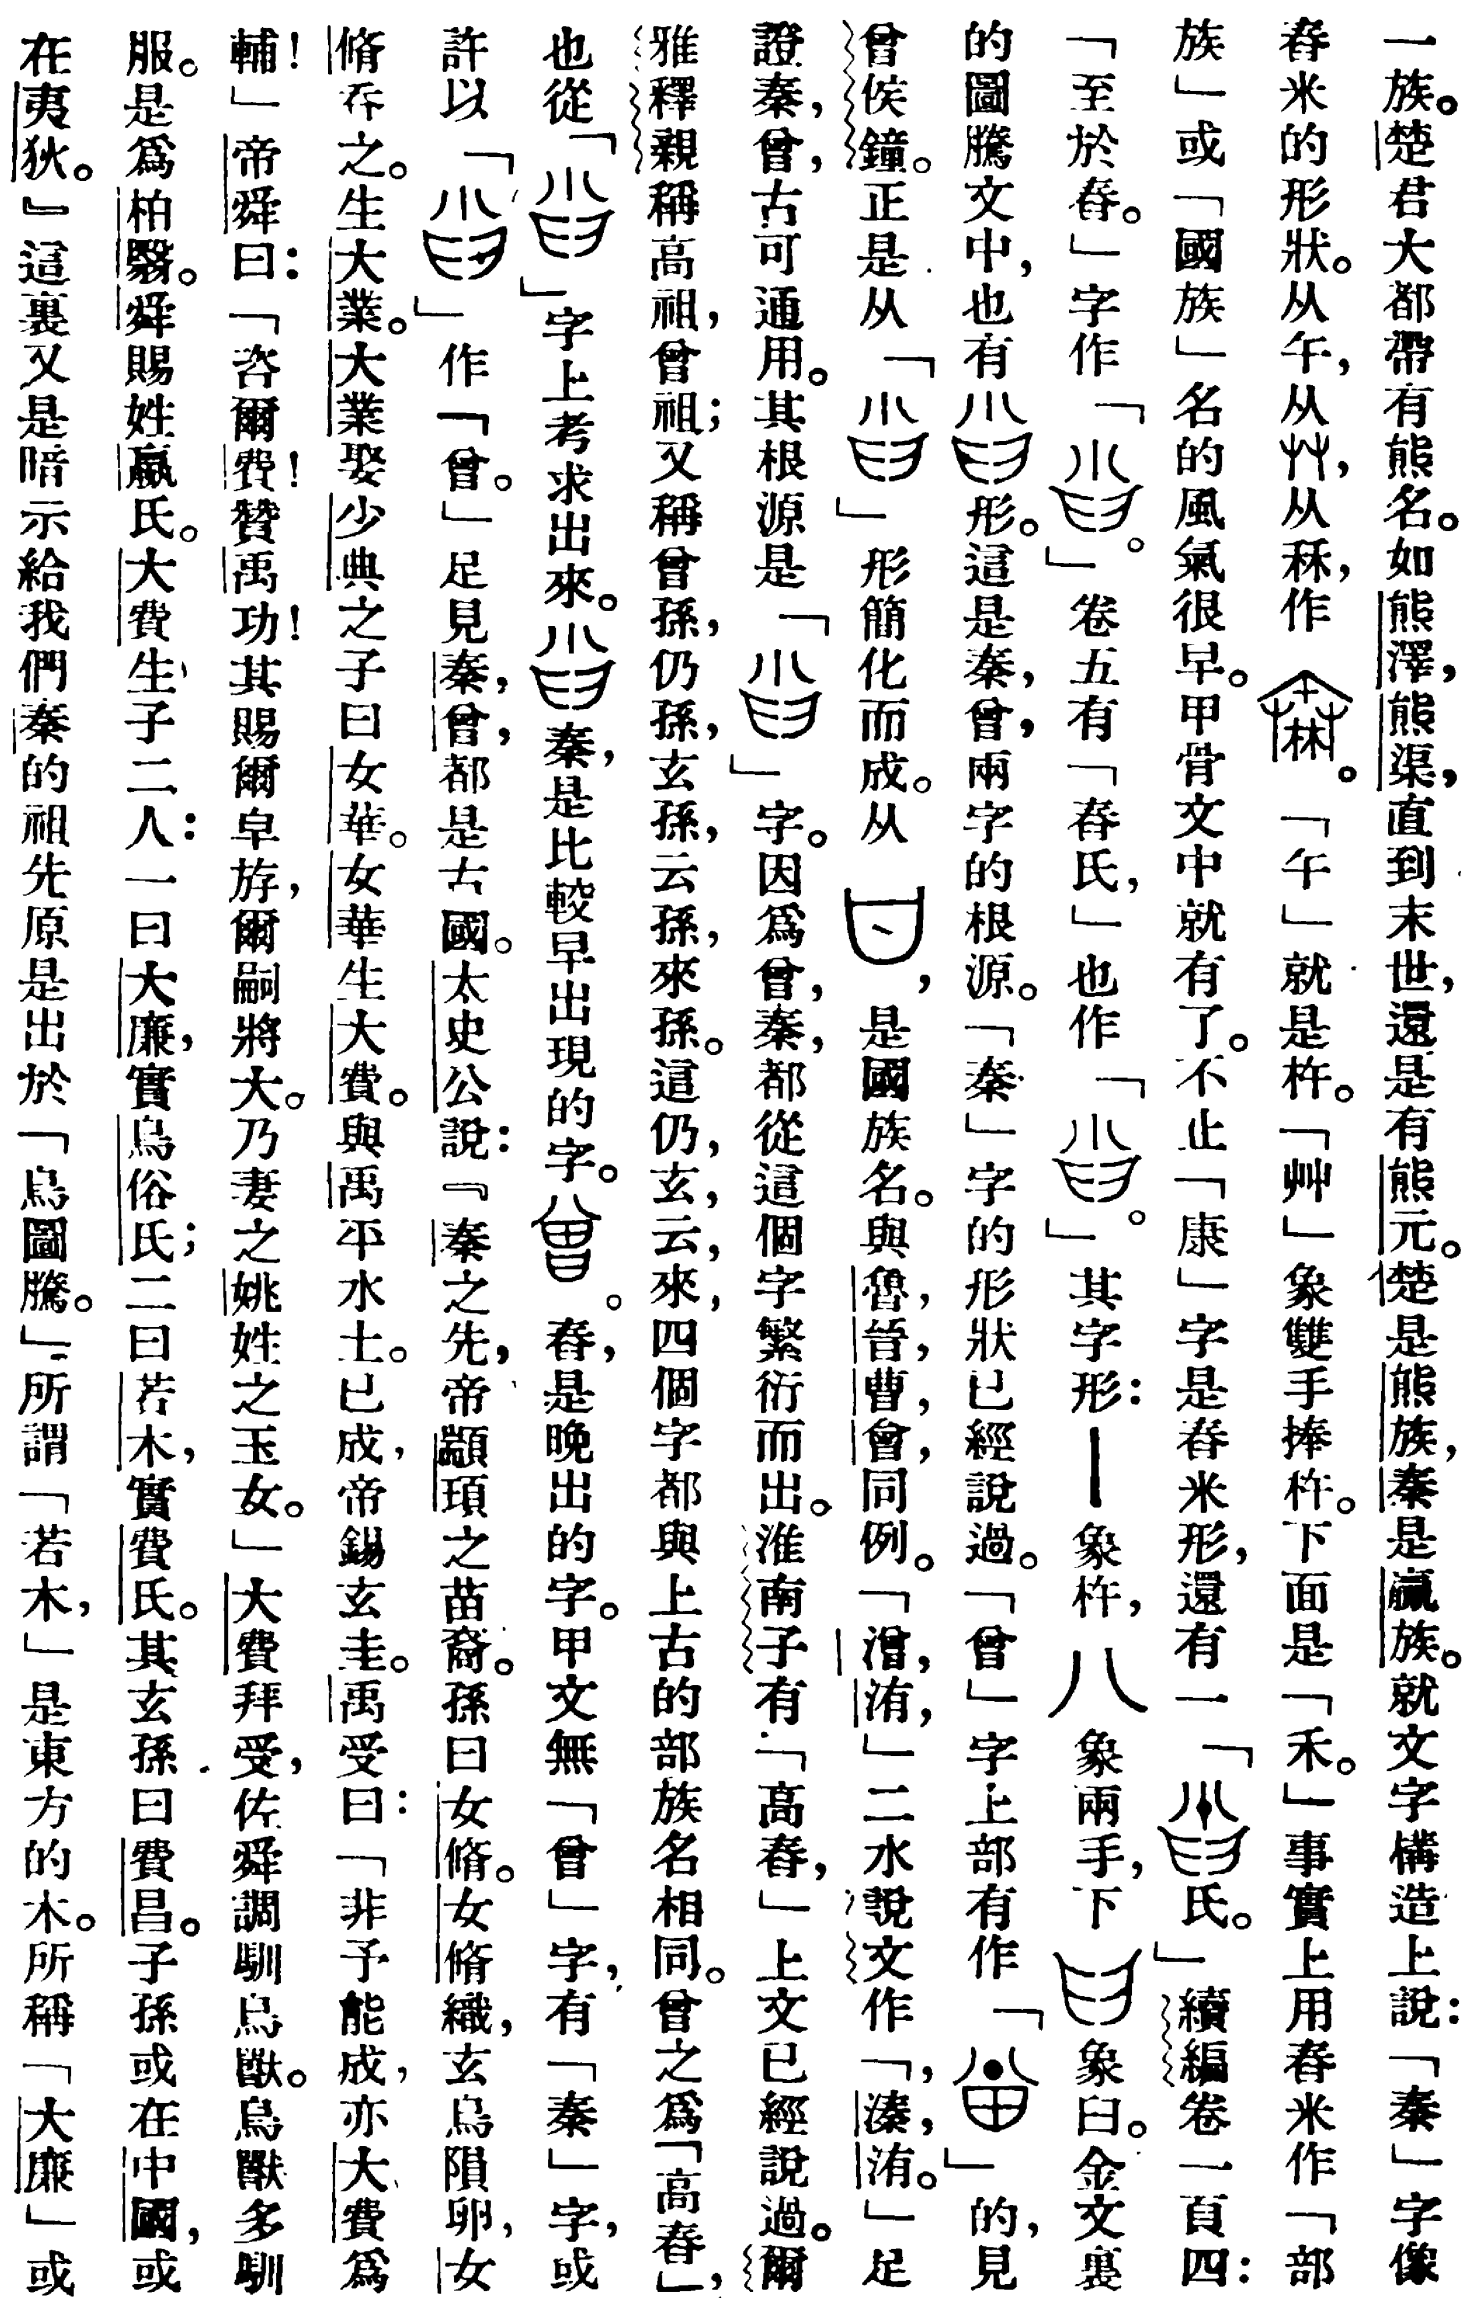 一族。楚君大都帶有熊名。如熊澤，熊渠，直到末世，還是有熊元。楚是熊族，秦是嬴族。就文字構造上說：「秦」字像
舂米的形狀。从午，从艸，从秝，作。「午」就是杵。「艸」象雙手捧杵。下面是「禾。」事實上用舂米作「部
族」或「國族」名的風氣很早。甲骨文中就有了。不止「康」字是舂米形，還有一「氏。」續編卷一頁四：
「至於舂。」字作「。」卷五有「舂氏，」也作「。」其字形：｜象杵，八象兩手，下象臼。金文裏
的圖騰文中，也有形。這是秦，曾，兩字的根源。「秦」字的形狀已經說過。「曾」字上部有作「」的，見
曾侯鐘。正是从「」形簡化而成。从，是國族名。與魯，晉，曹，會，同例。「潧，洧，」二水說文作「，溱，洧。」足
證秦，曾，古可通用。其根源是「」字。因爲曾，秦，都從這個字繁衍而出。淮南子有「高舂，」上文已經說過。爾
雅釋親稱高祖，曾祖；又稱曾孫，仍孫，玄孫，云孫，來孫。這仍，玄，云，來，四個字都與上古的部族名相同。曾之爲「高舂」，
也從「」字上考求出來。秦，是比較早出現的字。。舂，是晚出的字。甲文無「曾」字，有「秦」字，或
許以「」作「曾。」足見秦，曾，都是古國。太史公說：『秦之先，帝顓頊之苗裔。孫曰女脩。女脩織，玄鳥隕卵，女
脩吞之。生大業。大業娶少典之子曰女華。女華生大費。與禹平水土。已成，帝錫玄圭。禹受曰：「非予能成，亦大費爲
輔！」帝舜曰：「咨爾費！贊禹功！其賜爾皁斿，爾嗣將大。乃妻之姚姓之玉女。」大費拜受，佐舜調馴鳥獸。鳥獸多馴
服。是爲柏翳。舜賜姓嬴氏。大費生子二人：一曰大廉，實鳥俗氏；二曰若木，實費氏。其玄孫曰費昌。子孫或在中國，或
在夷狄。』這裏又是暗示給我們秦的祖先原是出於「鳥圖騰。」所謂「若木，」是東方的木。所稱「大廉」或